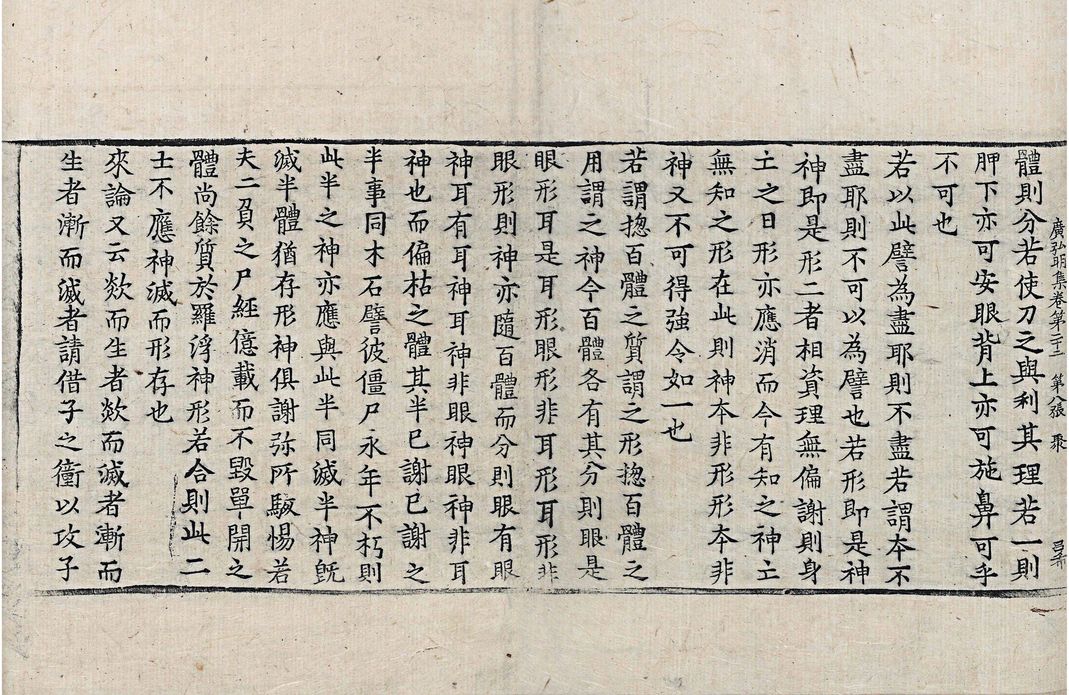 廣弘明集卷第二十二 第八張 聚
體則分若使刀之與利其理若一則
胛下亦可安眼背上亦可施鼻可乎
不可也
若以此譬為盡耶則不盡若謂本不
盡耶則不可以為譬也若形即是神
神即是形二者相資理無偏謝則身
亡之日形亦應消而今有知之神亡
無知之形在此則神本非形形本非
神又不可得強令如一也
若謂揔百體之質謂之形揔百體之
用謂之神今百體各有其分則眼是
眼形耳是耳形眼形非耳形耳形非
眼形則神亦隨百體而分則眼有眼
神耳有耳神耳神非眼神眼神非耳
神也而偏枯之體其半已謝已謝之
半事同木石譬彼僵尸永年不朽則
此半之神亦應與此半同滅半神旣
滅半體猶存形神俱謝弥所駭惕若
夫二負之尸經億載而不毀單開之
體尚餘質於羅浮神形若合則此二
士不應神滅而形存也
來論又云欻而生者欻而滅者漸而
生者漸而滅者請借子之衝以攻子